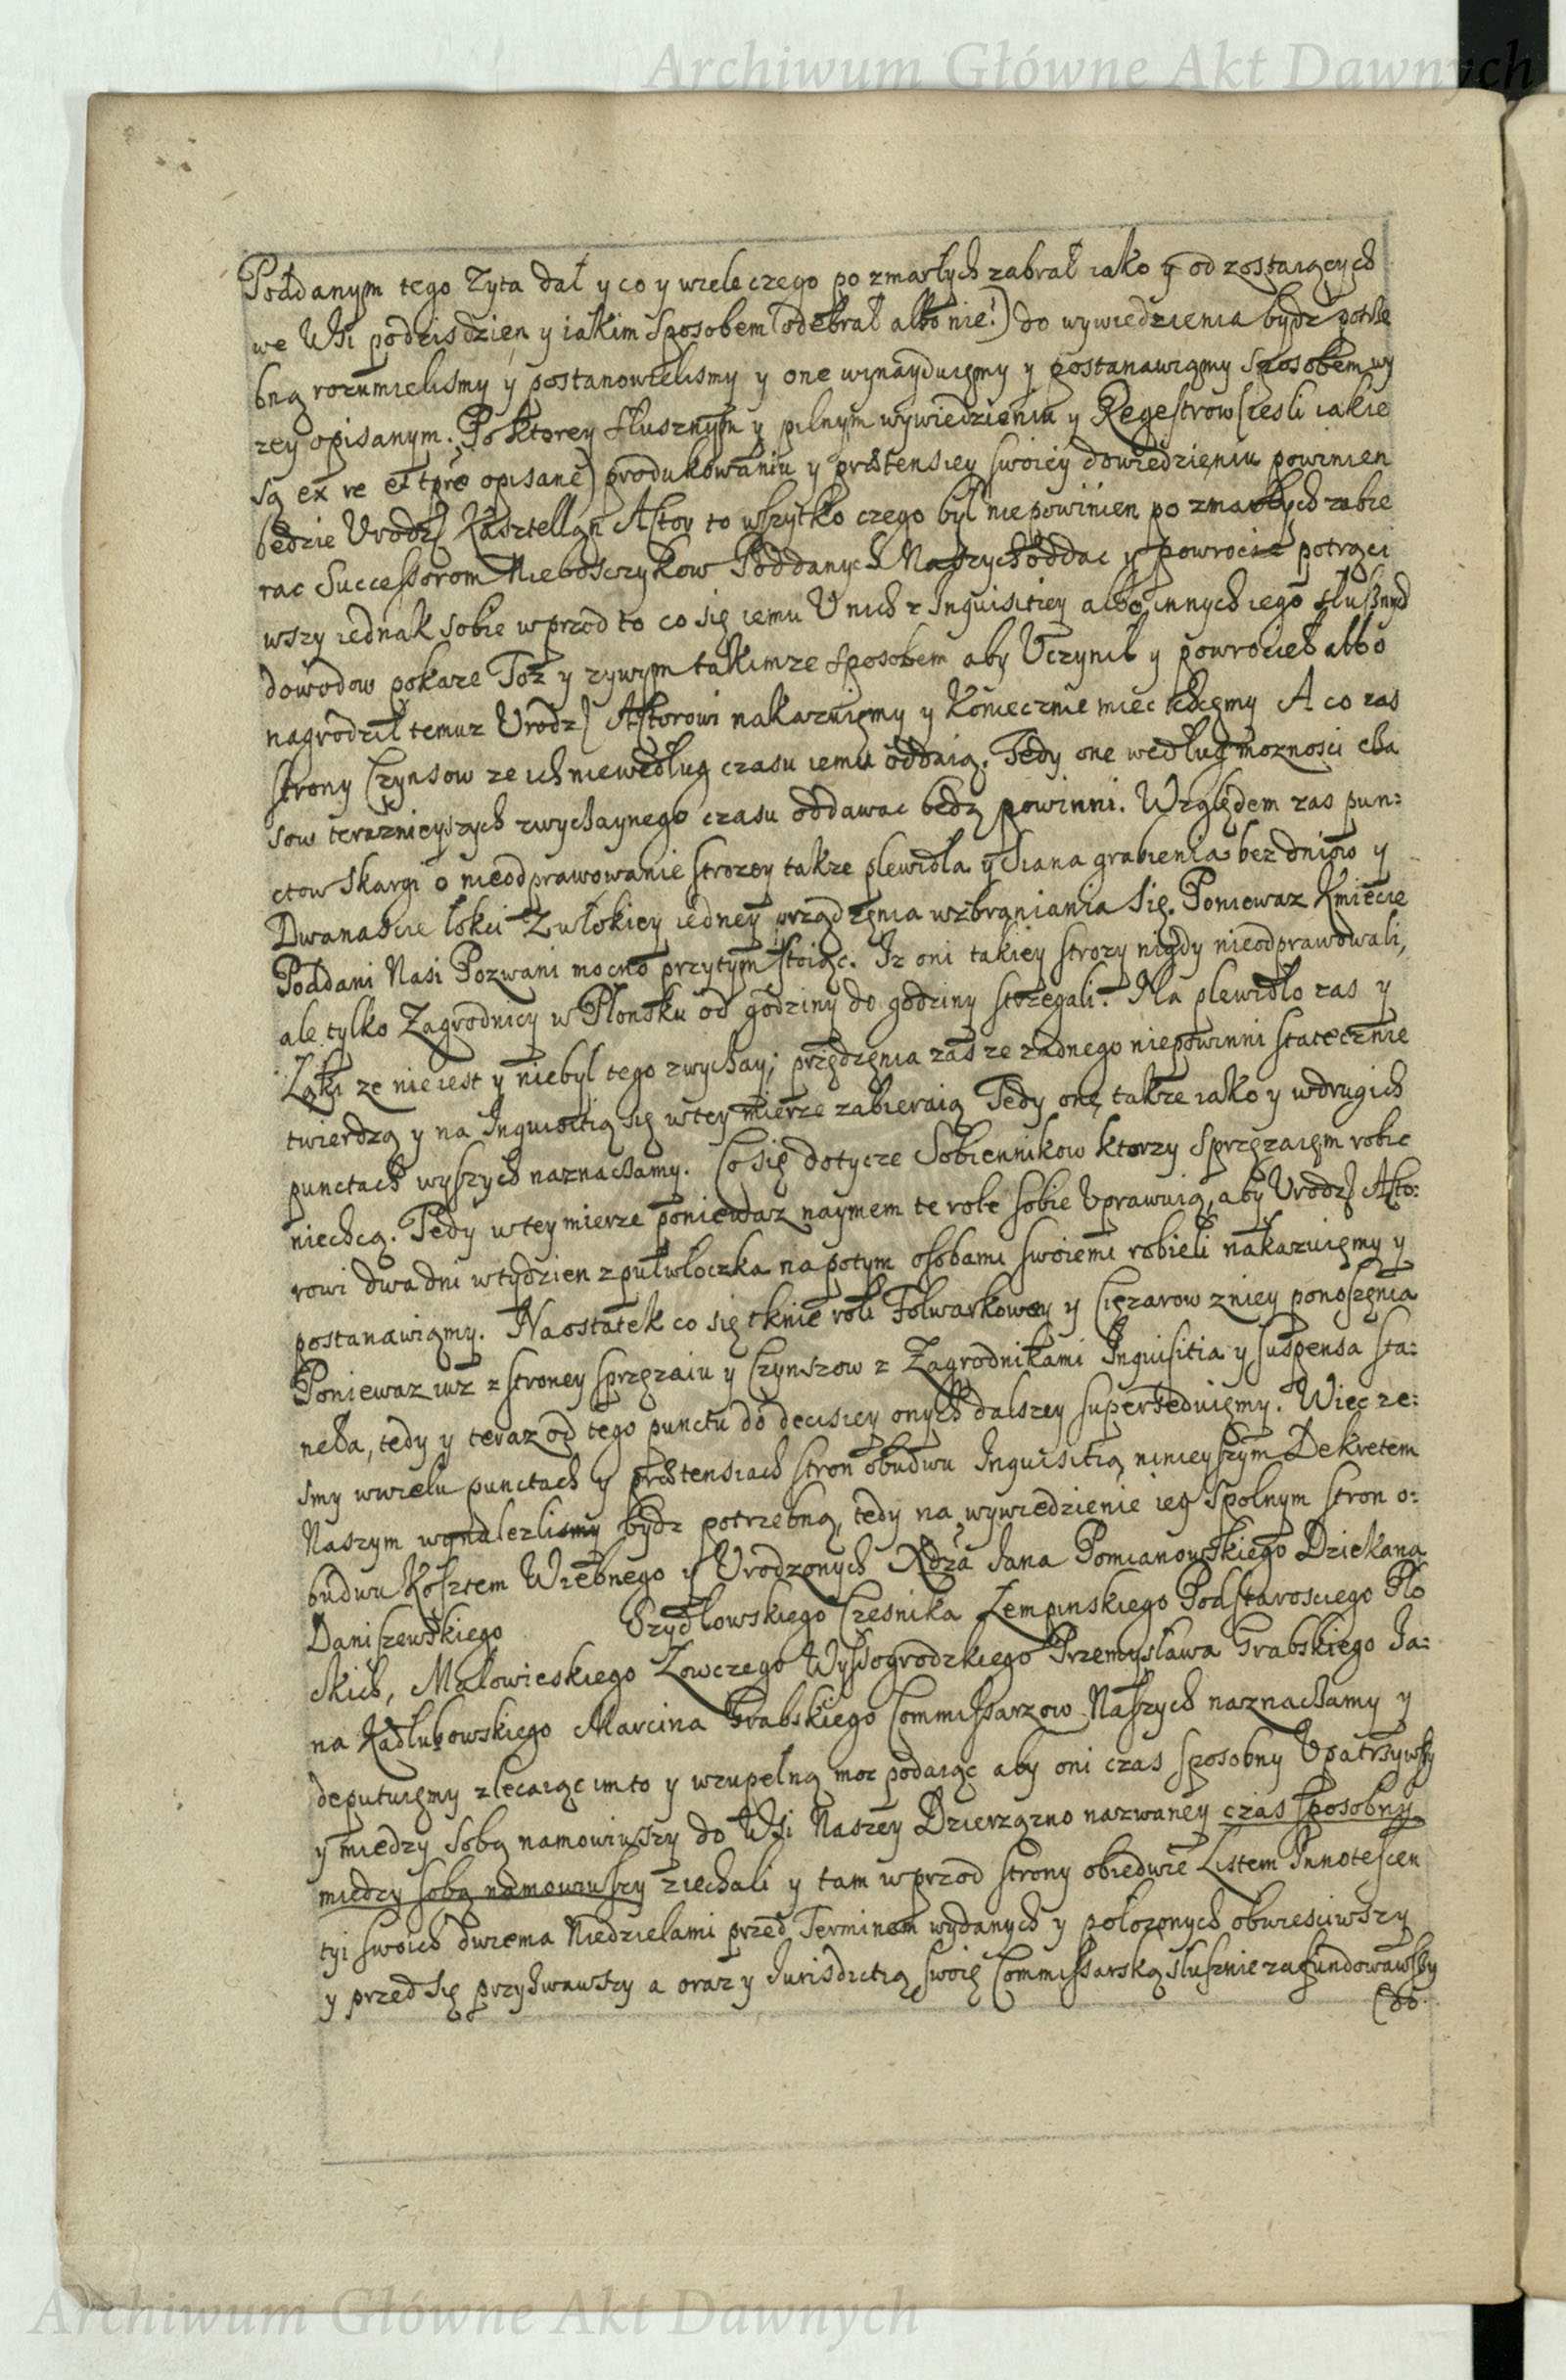 Archiwum Główne Akt Dawnych
Poddanym tego Zyta dał y co y wiele czego po zmarłych zabrał iako y od zostaiących
we Wsi podzisdzien y iakim sposobem (odebrał albo nie!) do wywiedzienia bydz potrze
bną rozumielismy y postanowielismy y one wynayduięmy y postanawiąmy sposobem wy
zey opisanym. Po ktorey słusznym y pilnym wywiedzieniu y Regestrow (iesli iakie
są ex re et tpre opisane) produkowaniu y prætensiey swoiey dowiedzięniu powinien
będzie Urodz Kasztellan Actor to wszytko czego był niepowinien po zmarłych zabie
rac Successorom Nieboszczykow Poddanych Naszych oddac y powrocic potrąci
wszy iednak sobie wprzod to co się iemu U nich z Inquisitiey albo innych iego słusznych
dowodow pokaze Toz y zywym takimze sposobem aby Uczynił y powrocieł albo
nagrodził temuz Urodz Actorowi nakazuięmy y koniecznie miec chcęmy A co zas
strony Czynsow ze ich niewedług czasu iemu oddaią. Tedy one według moznosci cza
sow teraznieyszych zwychaynego czasu oddawac będą powinni. Względem zas pun:
ctow skargi o nieodprawowanie strozey takze plewidła y Siana grabienia bez dniow y
Dwanascie łokci Zwłokiey iedney prządzęnia wzbraniania się. Poniewaz Kmiecie
Poddani Nasi Pozwani mocno przytym stoiąc. Iz oni takiey strozy nigdy nieodprawowali,
ale tylko Zagrodnicy w Płonsku od godziny do godziny strzegali. Na plewidło zas y
Łąki ze nie iest y niebył tego zwychay; przędzęnia zas ze zadnego niepowinni statecznie
twierdzą y na Inquisitią się wtey mierze zabieraią Tedy onę takze iako y wdrugich
punctach wyszych naznachamy. Co się dotycze Sobiennikow ktorzy sprzęzaięm robic
niechcą. Tedy wtey mierze poniewaz naymem te role sobie Uprawuią, aby Urodz Acto:
rowi dwa dni wtydzien zpułwłoczka napotym osobami swoiemi robieli nakazuięmy y
postanawiąmy. Naostatek co się tknie roli Folwarkowey y Cięzarow zniey ponoszęnia
Poniewaz iuz z stroney sprzęzaiu y Czynszow z Zagrodnikami Inquisitia y suspensa sta:
neła, tedy y teraz od tego punctu do decisiey onych dalszey superseduięmy. Więc ze:
smy wwielu punctach y prætensiach stron obudwu Inquisitią ninieyszym Dekretem
Naszym wynalezlismy bydz potrzebną, tedy na wywiedzienie iey Spolnym stron o:
budwu Kosztem Wiebnego y Urodzonych Xdza Jana Pomianowskiego Dziekana
Daniszewskiego Szydłowskiego Czesnika Zempinskiego Podstarosciego Pło
ckich, Malowieskiego Łowczego Wyssogrodzkiego Przemysława Grabskiego Ja:
na Kadłubowskiego Marcina Grabskiego Commissarzow Naszych naznachamy y
deputuięmy zlecaiąc im to y wzupełną moc podaiąc aby oni czas sposobny Upatrzywszy
y między sobą namowiwszy do Wsi Naszey Dzierzązno nazwaney czas sposobny
między sobą namowiwszy ziechali y tam wprzod strony obiedwie Listem Innotescen
tyi swoich dwiema Niedzielami przed Terminem wydanych y połozonych obwiesciwszy
y przed się przyzwawszy a oraz y Jurisdictią swoię Commissarską słusznie zafundowawszy
Archiwum Główne Akt Dawnych